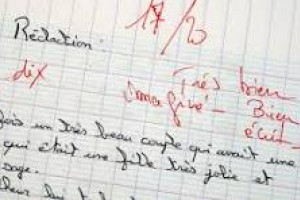 17/20
Rédaction :
dix
Très bien
imaginé - Bien
écrit -
fois un très beau couple qui avait une
qui était une fille très jolie et
sage.
leur